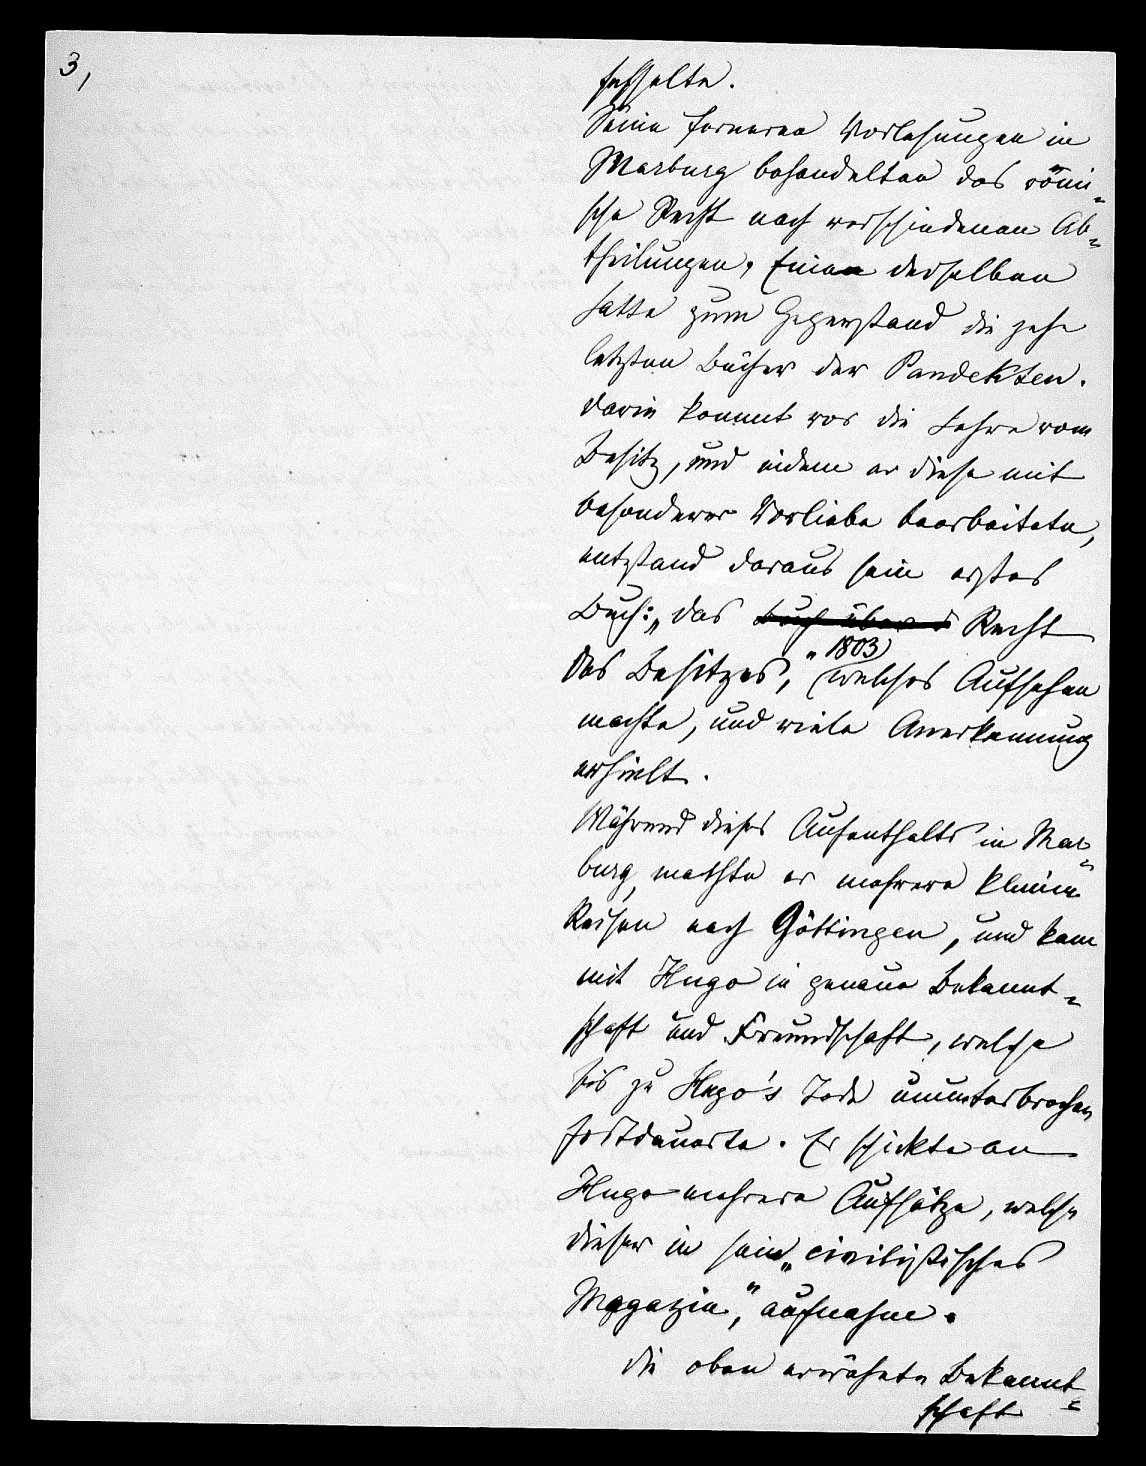 3,
fesselte.
Seine ferneren Vorlesungen in
Marburg behandelten das römi-
sche Recht nach verschiedenen Ab-
theilungen, Eine derselben
hatte zum Gegenstand die zehn
letzten Bücher der Pandekten.
darin kommt vor die Lehre vom
Besitz, und indem er diese mit
besonderer Vorliebe bearbeitete,
entstand daraus sein erstes
Buch: „das Buch über d Recht
des Besitzes," 1803 welches Aufsehen
machte, und viele Anerkennung
erhielt.
Während dieses Aufenthalts in Mar-
burg, machte er mehrere kleine
Reisen nach Göttingen, und kam
mit Hugo in genaue Bekannt-
schaft und Freundschaft, welche
bis zu Hugo's Tode ununterbrochen
fortdauerte. Er schickte an
Hugo mehrere Aufsätze, welche
dieser in sein „civilistisches
Magazin," aufnahm.
die oben erwähnte Bekannt-
schaft